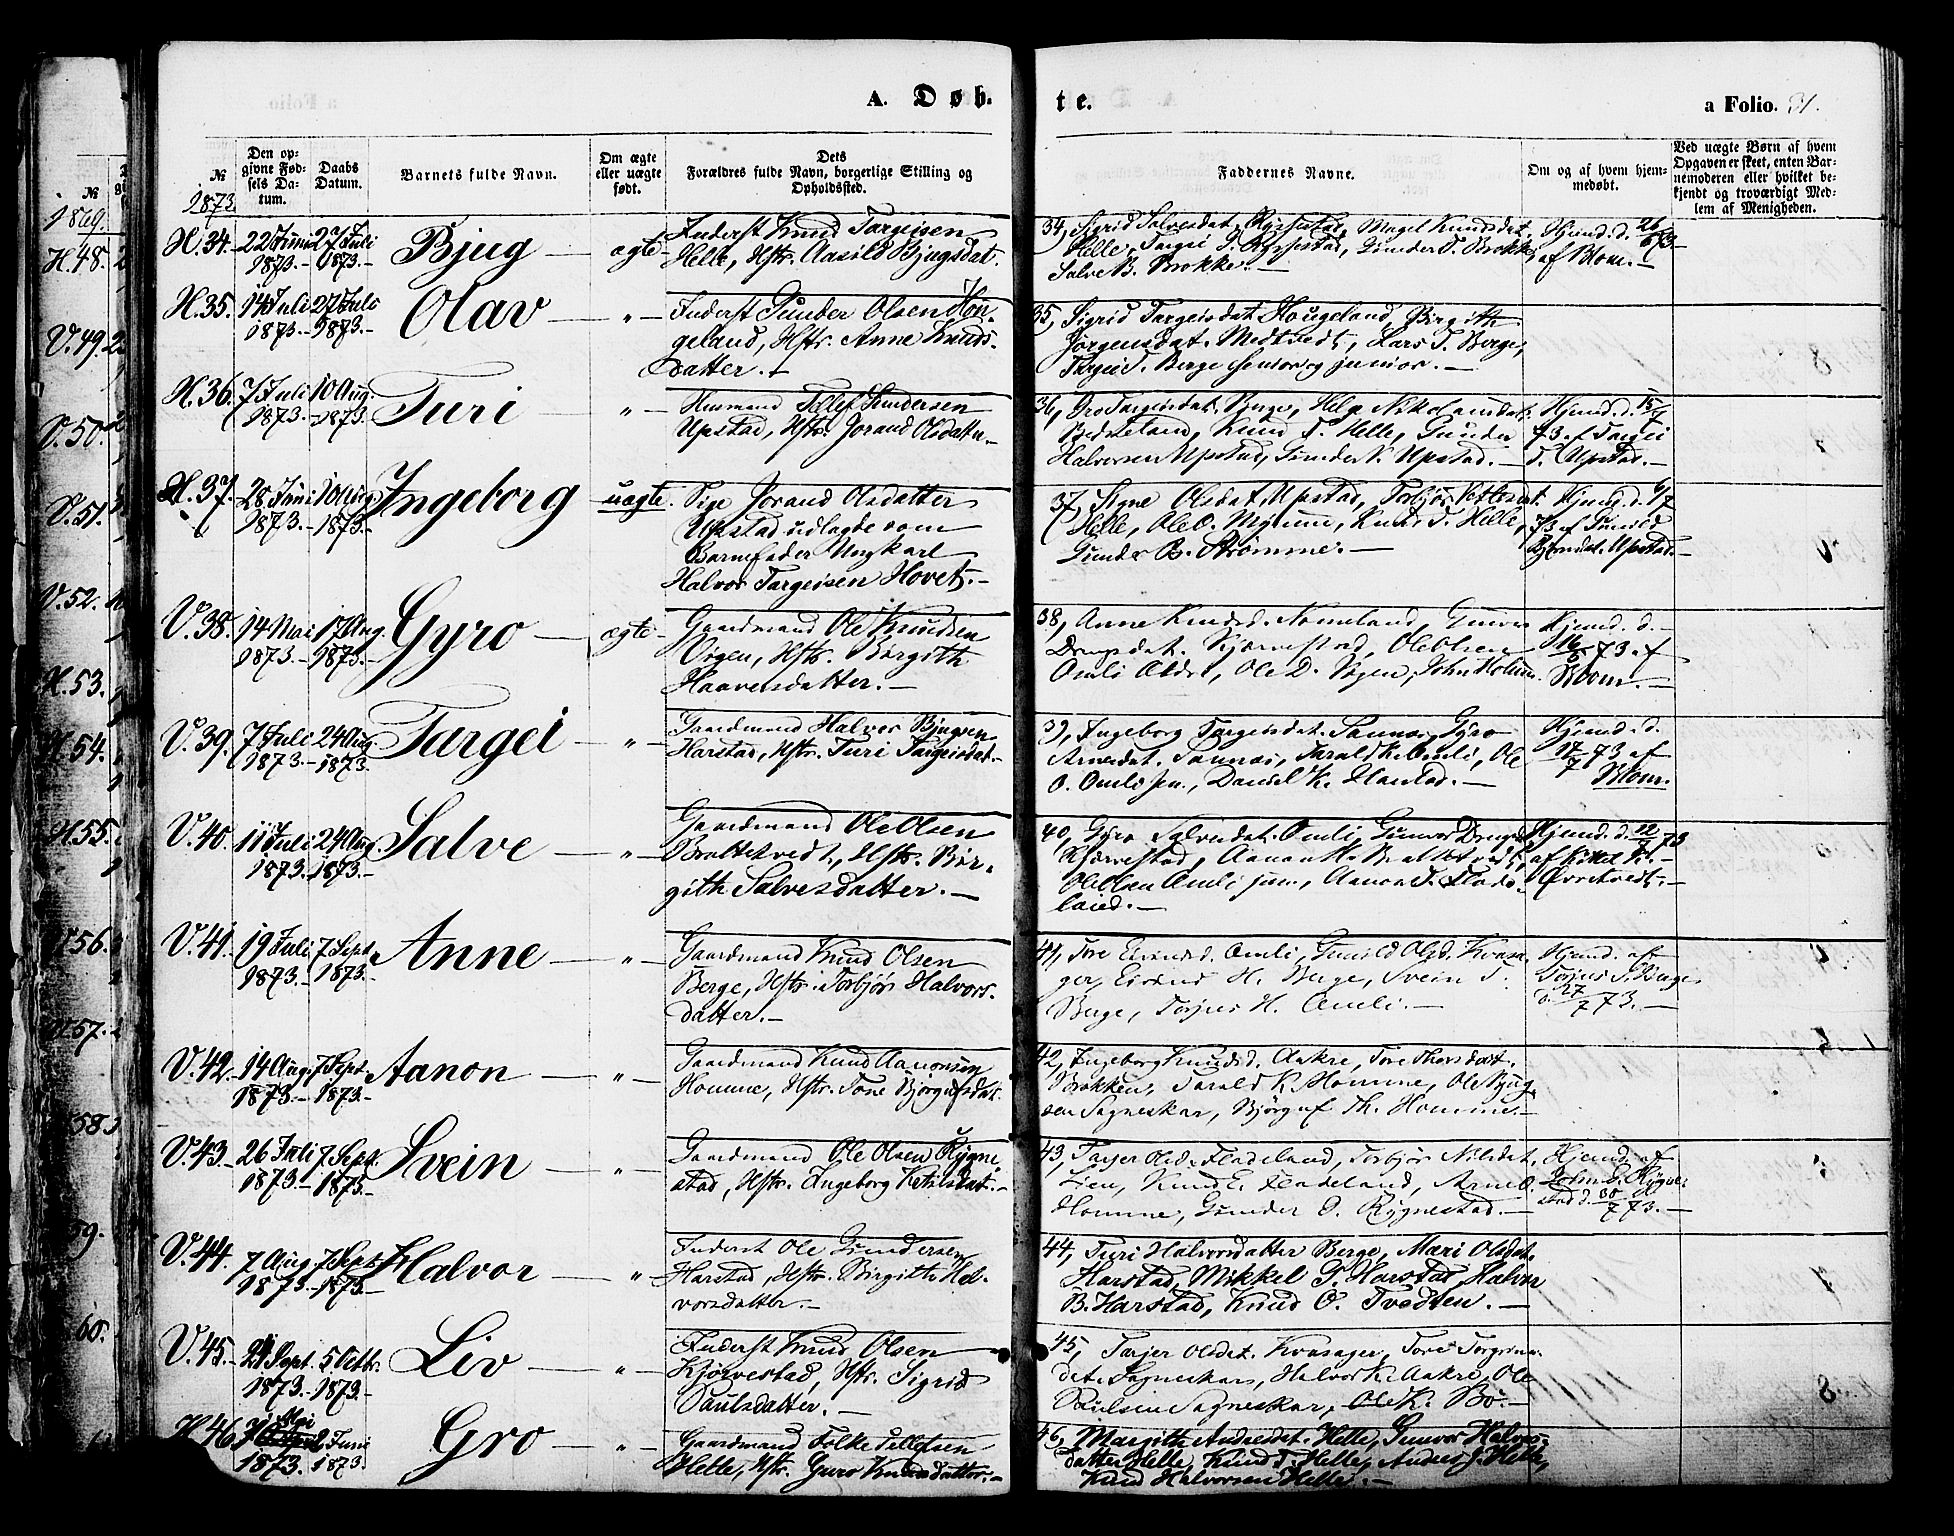 A. Døb-
te.
a Folio. 31.
№
Den opgivne Fødsels Datum.
Daabs Datum.
Barnets fulde Navn.
Om ægte eller uægte født.
Dets Forældres fulde Navn, borgerlige Stilling og Opholdssted.
Faddernes Navne.
Om og af hvem hjemmedøbt.
Ved uægte Børn af hvem Opgaven er skeet, enten Barnemoderen eller hvilket bekjendt og troværdigt Medlem af Menigheden.
1873.
H. 34. 22 Juni 1873.- 27 Juli 1873.- Bjug — ægte-
Inderst Knud Targeisen
Helle, Hstr. Aasild Bjugsdat.
34, Sigrid Salvesdat. Rysstad, Magel Knudsdat.
Helle, Targei T. Rysstad, Gunder T. Brokke,
Salve B. Brokke.—
Hjemd. d. 26/6 73-
af Blom.—
H. 35. 14 Juli 1873.- 27 Juli 1873.- Olav — „ —
Inderst Gunder Olsen Hou-
geland, Hstr. Anne Knuds-
datter.—
35, Sigrid Targeisdat. Hougeland, Birgith
Jørgensdat. Medtvedt, Lars T. Berge,
Targei T. Berge senior og junior.—
H. 36. 7 Juli 1873.- 10 Aug. 1873.- Turi — „ —
Husmand Tellef Gundersen
Upstad, Hstr. Jorand Olsdatter.—
36, Gro Targeisdat. Berge, Helga Nikolausdat.
Bedsteland, Knud T. Helle, Gunder
Halvorsen Upstad, Gunder K. Upstad.—
Hjemd. d. 15/7
73 af Targei
T. Upstad.—
H. 37. 28 Juni 1873.- 10 Aug. 1873.- Ingeborg uægte.
Pige Jorand Olsdatter
Upstad udlagde som
Barnefader Ungkarl
Halvor Targeisen Hovet.—
37, Signe Olsdat. Upstad, Torbjør
Helle, Ole O. Myrum, Knud T. Helle,
Gunder B. Strømme.—
Hjemd. d. 6/7
73 af Gunvld
Bjørnsdat. Upstad.—
V. 38. 14 Mai 1873.- 17 Aug. 1873.- Gyro — ægte-
Gaardmand Ole Knudsen
Vigen, Hstr. Børgith
Haavorsdatter.—
38, Anne Knudsd. Nomeland, Gunvor
Dreugsdat. Kjørvestad, Ole Olsen
Omli Ældre, Ole D. Vigen, John Holum.
Hjemd. d.
16/5 73 af
Blom.—
V. 39. 7 Juli 1873.- 24 Aug. 1873. Targei — „ —
Gaardmand Halvor Bjugsen
Harstad, Hstr. Turi Targeisdat.—
39, Ingeborg Targeisdat. Sannæs, Gyro
Arnesdat. Sannæs, Tarald K. Omli, Ole
O. Omli jun., Daniel K. Harstad.—
Hjemd. d.
17/7 73 af
Blom.
V. 40. 11 Juli 1873.- 24 Aug. 1873.- Salve — „ —
Gaardmand Ole Olsen
Brottekvedt, Hstr. Bør-
gith Salvesdatter.—
40, Gyro Salvesdat. Omli, Gunvor Dreugsd.
Kjørvestad, Aanon K. Brottekvedt,
Ole Olsen Omli jun., Aanon T. Flade-
land.—
Hjemd. d. 22/7 73
af Knud K.
Øvrekvedt.—
V. 41. 19 Juli 1873.- 7 Sept. 1873. Anne — „ —
Gaardmand Knud Olsen
Berge, Hstr. Torbjør Halvors-
datter.—
41, Tore Eivindsd. Omli, Gunild Olsd. Kvasa-
ger, Eivind H. Berge, Svein T.
Berge, Torjus H. Omli.—
Hjemd. af
Torjus T. Berge
d. 27/7 73.—
V. 42. 14 Aug. 1873.- 7 Sept. 1873.- Aanon — „ —
Gaardmand Knud Aanonsen
Homme, Hstr. Tone Bjørgufsdat.
42, Ingeborg Knudsd. Aakre, Tore Thorsdat.
Brokken, Tarald K. Homme, Ole Bjug-
sen Sagneskar, Bjørguf Th. Homme.—
V. 43. 26 Juli 1873.- 7 Sept. 1873.- Svein — „ —
Gaardmand Ole Olsen Rygne-
stad, Hstr. Ingeborg Ketilsdat.—
43, Tarjer Olsd. Fladeland, Torbjør Nilsdat.
Lien, Knud E. Fladeland, Arne O.
Homme, Gunder O. Rygnestad.—
Hjemd. af
John G. Rygne-
stad d. 30/7 73.—
V. 44. 7 Aug 1873.- 7 Sept 1873.- Halvor — „
Inderst Ole Gundersen
Harstad, Hstr. Birgith Hal-
vorsdatter.—
44, Turi Halvorsdatter Berge, Mari Olsdat.
Harstad, Mikkel G. Harstad, Halvor
B. Harstad, Knud O. Tvedten.—
V. 45. 21 Sept. 1873.- 5 Octbr. 1873.- Liv — „
Inderst Knud Olsen
Kjørvestad, Hstr. Sigrid
Paulsdatter.—
45, Tarjer Olsdat. Kvasager, Tore Torgrims-
dat. Sagneskar, Halvor K. Aakre, Ole
Paulsen Sagneskar, Ole K. Bø.—
H. 46 Mai 1873. 2 Juni 1873. Gro — „ —
Gaardmand Folke Tellefsen
Helle, Hstr. Guro Knudsdatter.—
46, Margith Andersdat. Helle, Gunvor Halvors-
datter Helle, Knud T. Helle, Anders J. Helle,
Knud Halvorsen Helle.—
№
1869.
H. 48.
V. 49.
V. 50.
V. 51.
V. 52.
H. 53.
H. 54.
H. 55.
56.
57.
58.
59.
60.